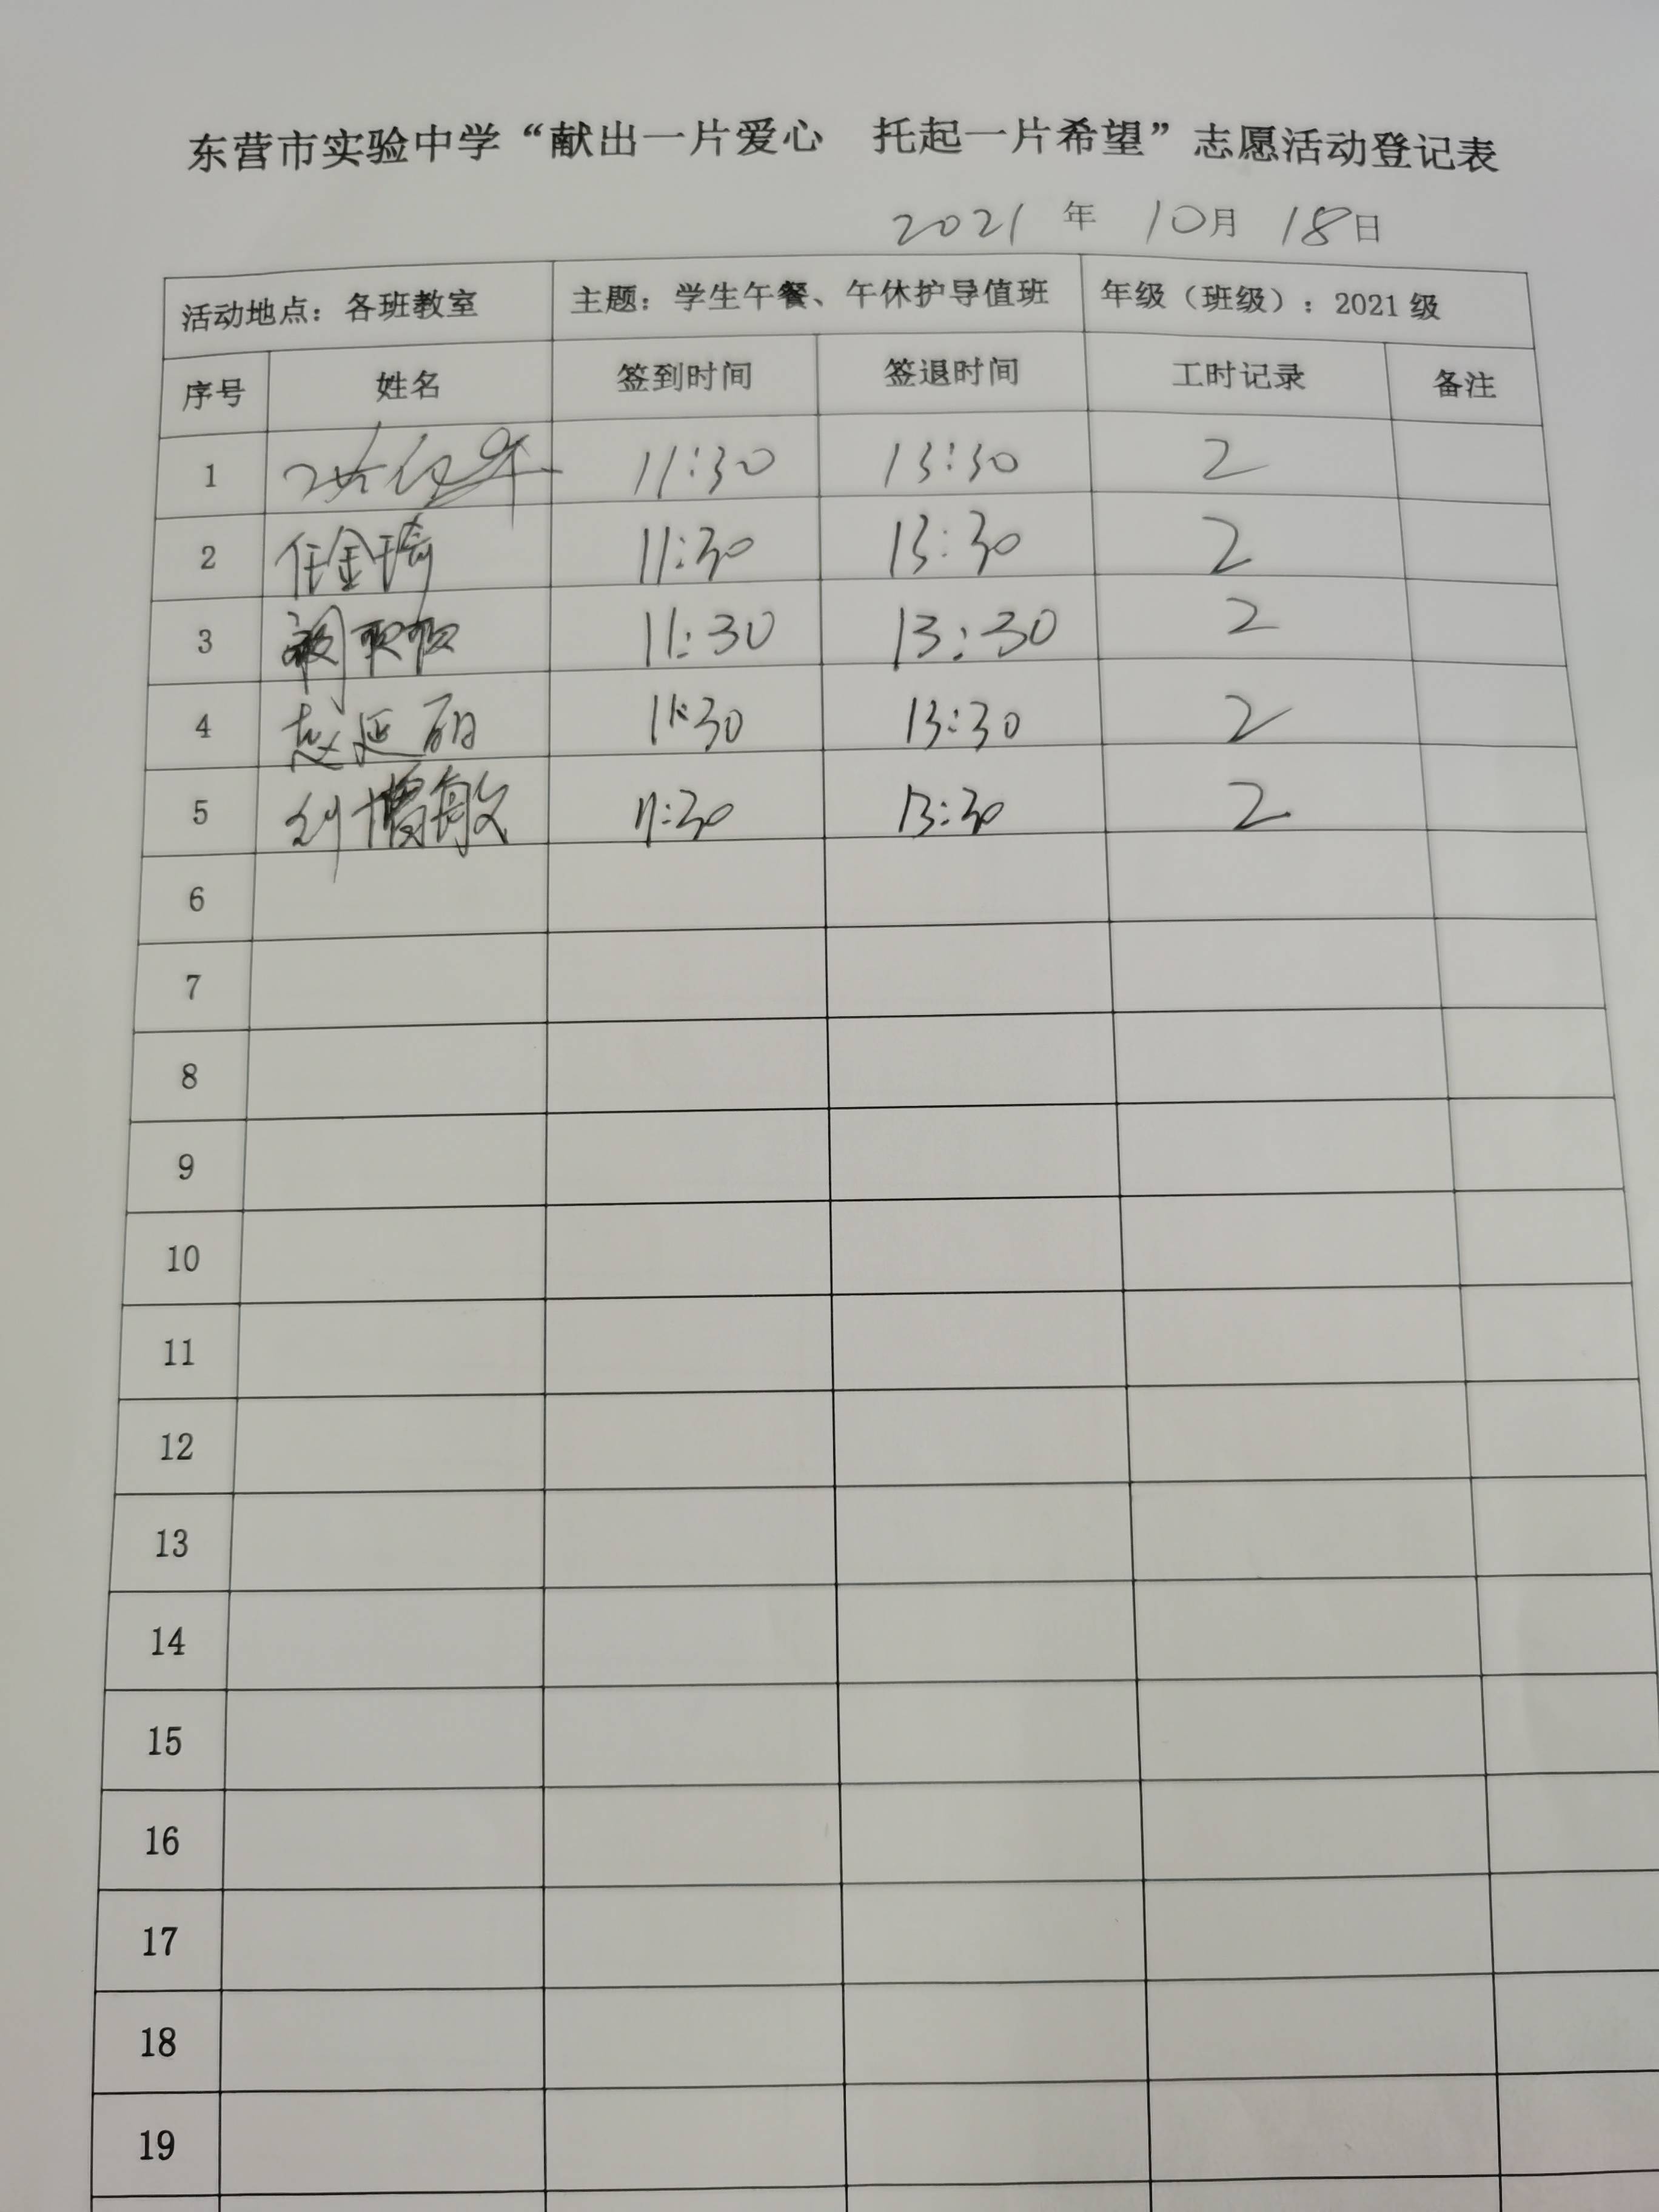 东营市实验中学“献出一片爱心 托起一片希望”志愿活动登记表
2021 年 10月 18日
活动地点：各班教室 主题：学生午餐、午休护导值班 年级（班级）：2021级
序号 姓名 签到时间 签退时间 工时记录 备注
1 11:30 13:30 2
2 任金琦 11:30 13:30 2
3 11:30 13:30 2
4 赵延 11:30 13:30 2
5 刘增敏 11:30 13:30 2
6
7
8
9
10
11
12
13
14
15
16
17
18
19